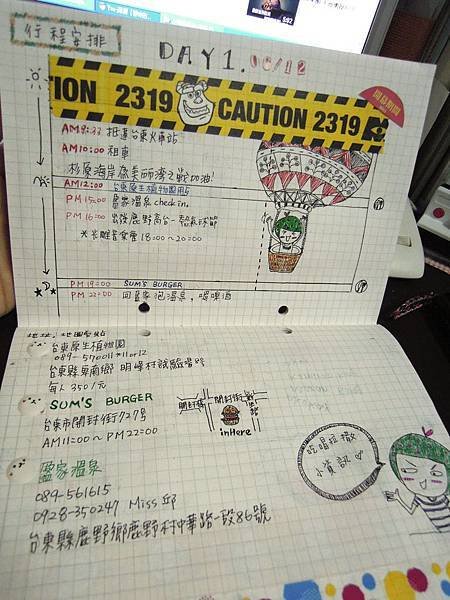 行程安排
DAY 1. 06/12
ION 2319 CAUTION 2319
AM 9:33 抵達台東火車站
AM 10:00 租車
杉原海岸為美麗灣之戰加油!
AM 12:00 台東原生植物園用站
PM 15:00 盈家溫泉 check in.
PM 16:00 出發鹿野高台-熱氣球節
18:00~20:00
PM 19:00 SUM'S BURGER
PM 22:00 回盈家泡溫泉,喝啤酒
台東原生植物園
089-570011 #11 or 12
台東縣卑南鄉 明峰村試驗場8號
每人350/元
SUM'S BURGER
台東市開封街727號
AM 11:00~PM 22:00
開封街
in Here
盈家溫泉
089-561615
0928-350247 Miss 邱
台東縣鹿野鄉鹿野村中華路一段86號
吃喝拉撒
小資訊